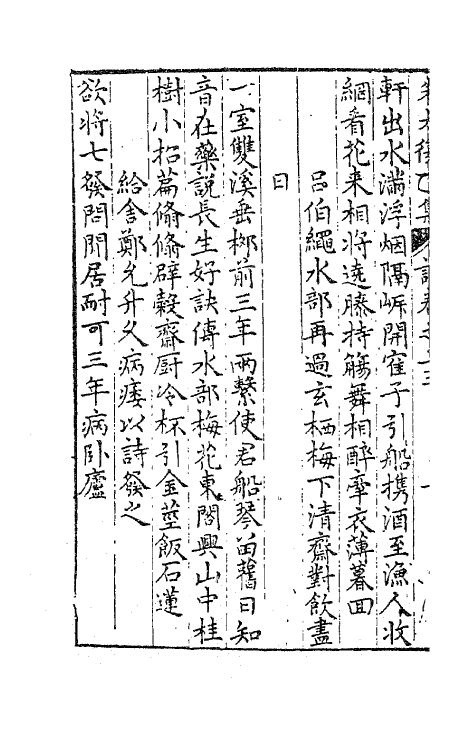 軒出水滿浮烟隔㟁開窪子引船携酒至漁人收
網看花来相將遶膝持觴舞相醉牽衣薄暮回
吕伯繩水部再過玄栖梅下清齋對飲盡
日
一室雙溪垂柳前三年兩繫使君船琴畱舊日知
音在藥說長生好訣傳水部梅花東閣興山中桂
樹小招篇脩脩辟穀齋厨冷杯引金莖飯石蓮
給舍鄭允升久病痿以詩發之
欲將七發問閒居耐可三年病卧廬